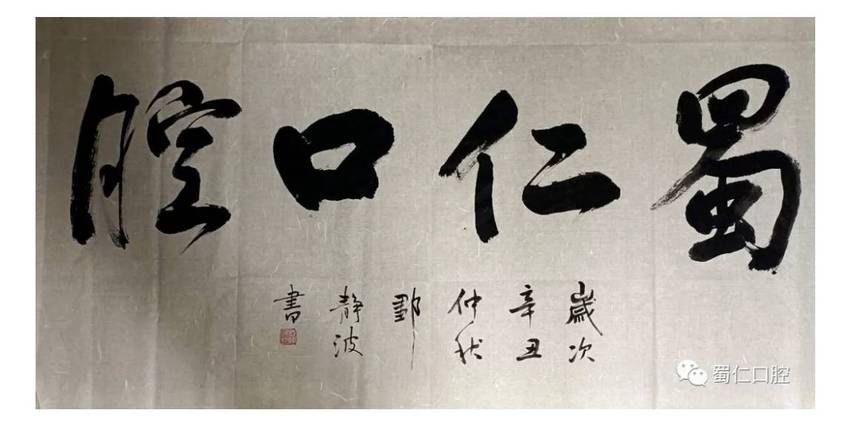 蜀仁口腔
歲次
辛丑
仲秋
鄞
静波
書
蜀仁口腔